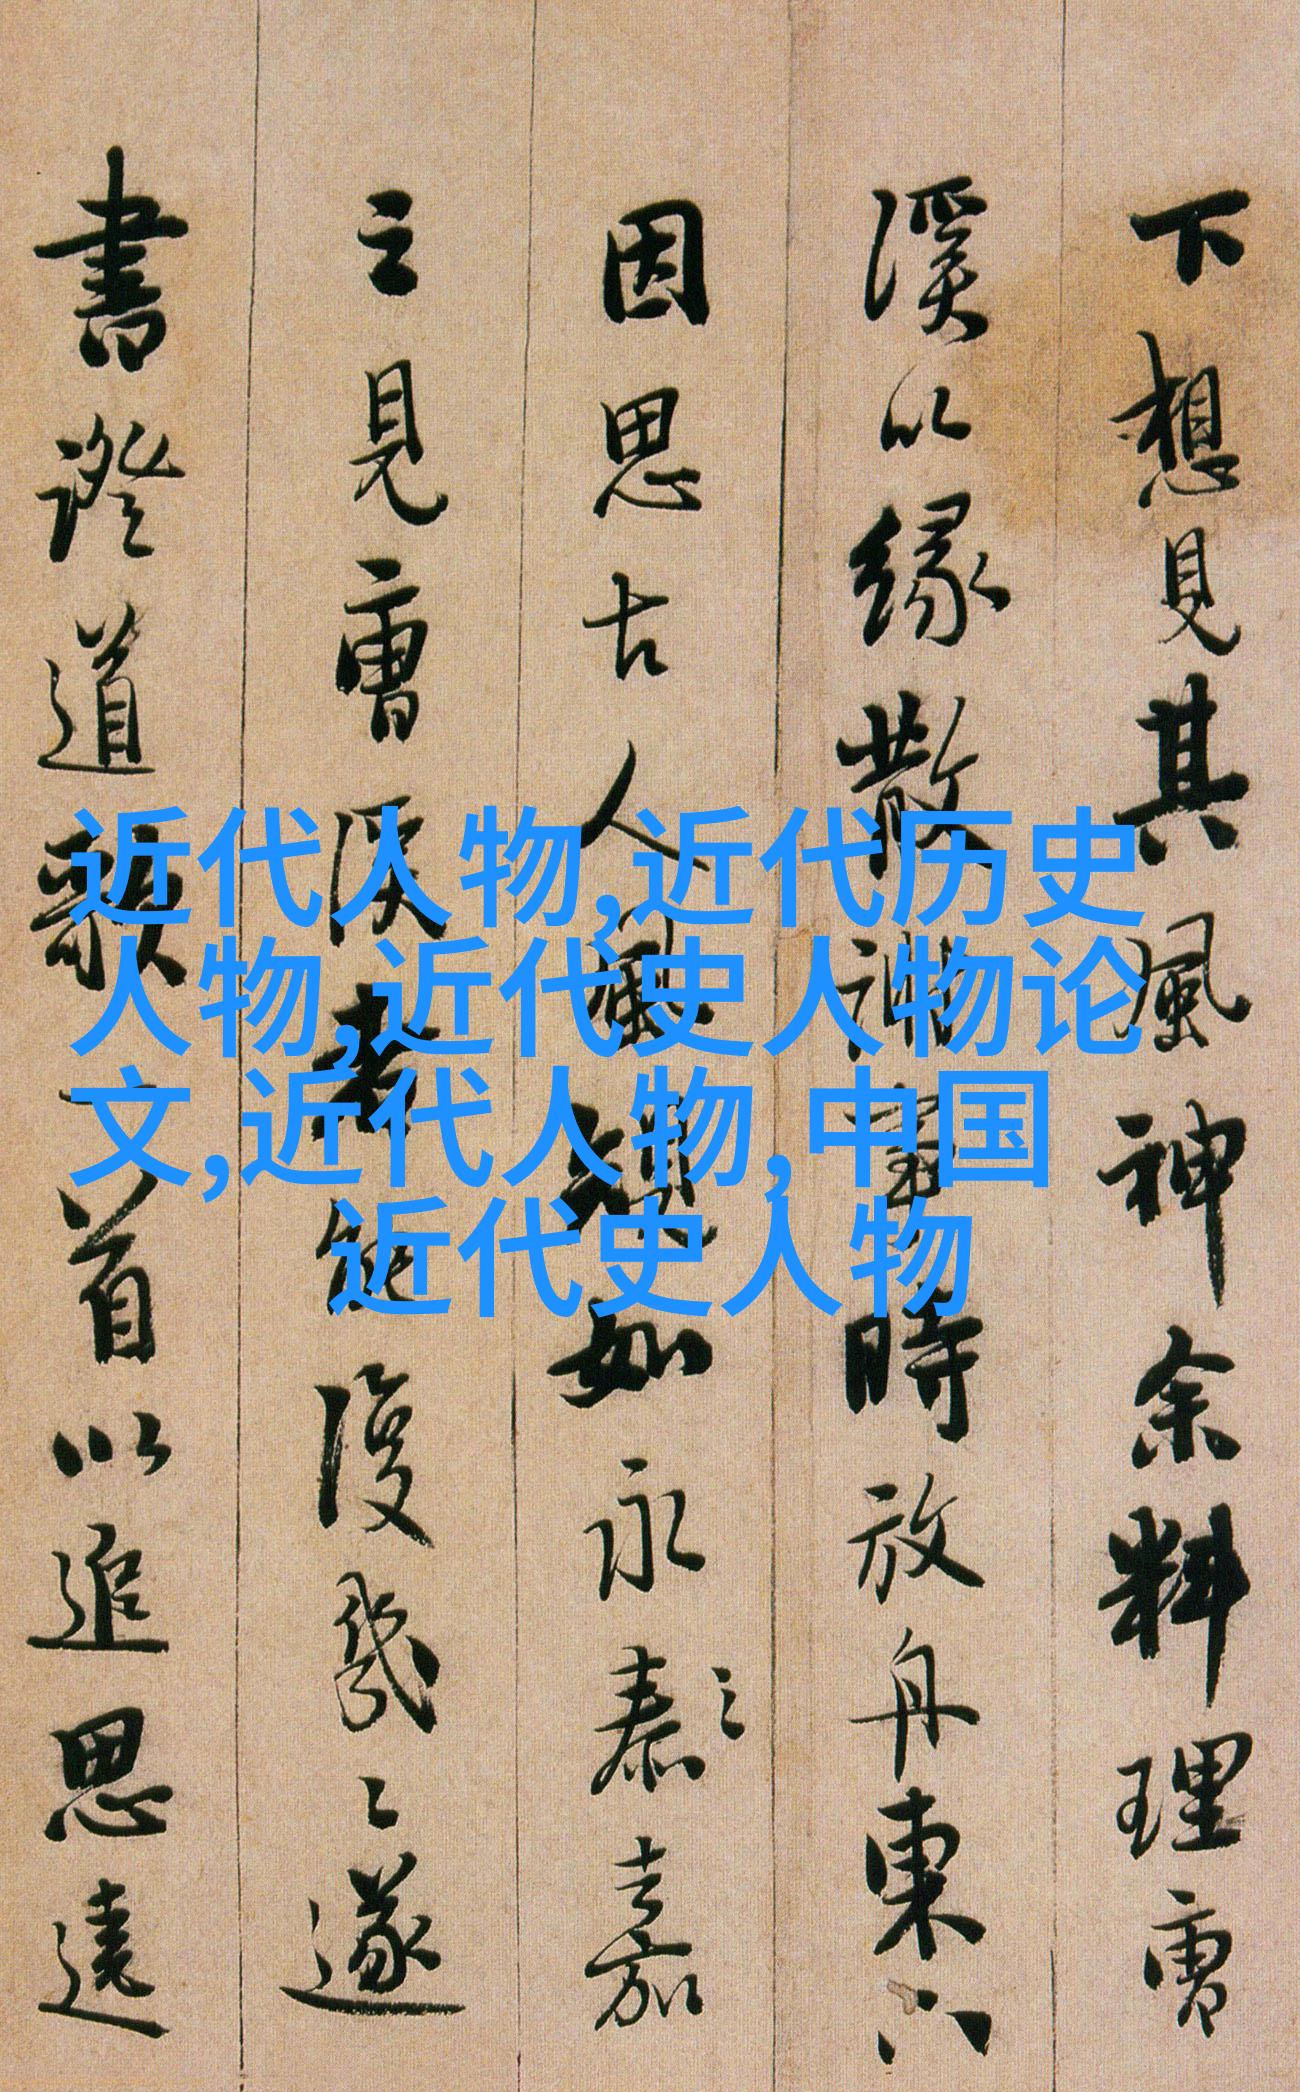 近代人物,近代历史
人物,近代史人物论
文,近代人物,中国
近代史人物
下想見其風神余料理曹
溪以緣散時放舟東下
因思古人風如永泰之嘉
之見曹溪能復幾遂
書證道歌一首以追思遠